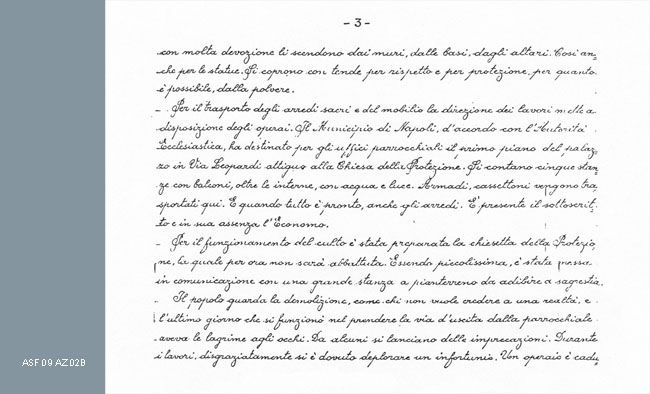 - 3 -
con molta devozione li scendono dai muri, dalle basi, dagli altari. Così an-
che per le statue. Si coprono con tende per rispetto e per protezione, per quanto
è possibile, dalla polvere.
- Per il trasporto degli arredi sacri e del mobilio la direzione dei lavori mette a
disposizione degli operai. Il Municipio di Napoli, d'accordo con l'Autorità
Ecclesiastica, ha destinato per gli uffici parrocchiali il primo piano del palaz-
zo in Via Leopardi attiguo alla Chiesa della Protezione. Si contano cinque stan-
ze con balconi, oltre le interne, con acqua e luce. Armadi, cassettoni vengono tra
sportati qui. E quando tutto è pronto, anche gli arredi. E' presente il sottoscrit-
to e in sua assenza l'Economo.
- Per il funzionamento del culto è stata preparata la chiesetta della Protezio
ne, la quale per ora non sarà abbattuta. Essendo piccolissima, è stata messa
in comunicazione con una grande stanza a pianterreno da adibire a sagrestia.
- Il popolo guarda la demolizione, come chi non vuole credere a una realtà, e
l'ultimo giorno che si funzionò nel prendere la via d'uscita dalla parrocchiale
aveva le lagrime agli occhi. Da alcuni si lanciano delle imprecazioni. Durante
i lavori, disgraziatamente si è dovuto deplorare un infortunio. Un operaio è cadu-
ASF 09 AZ 02B